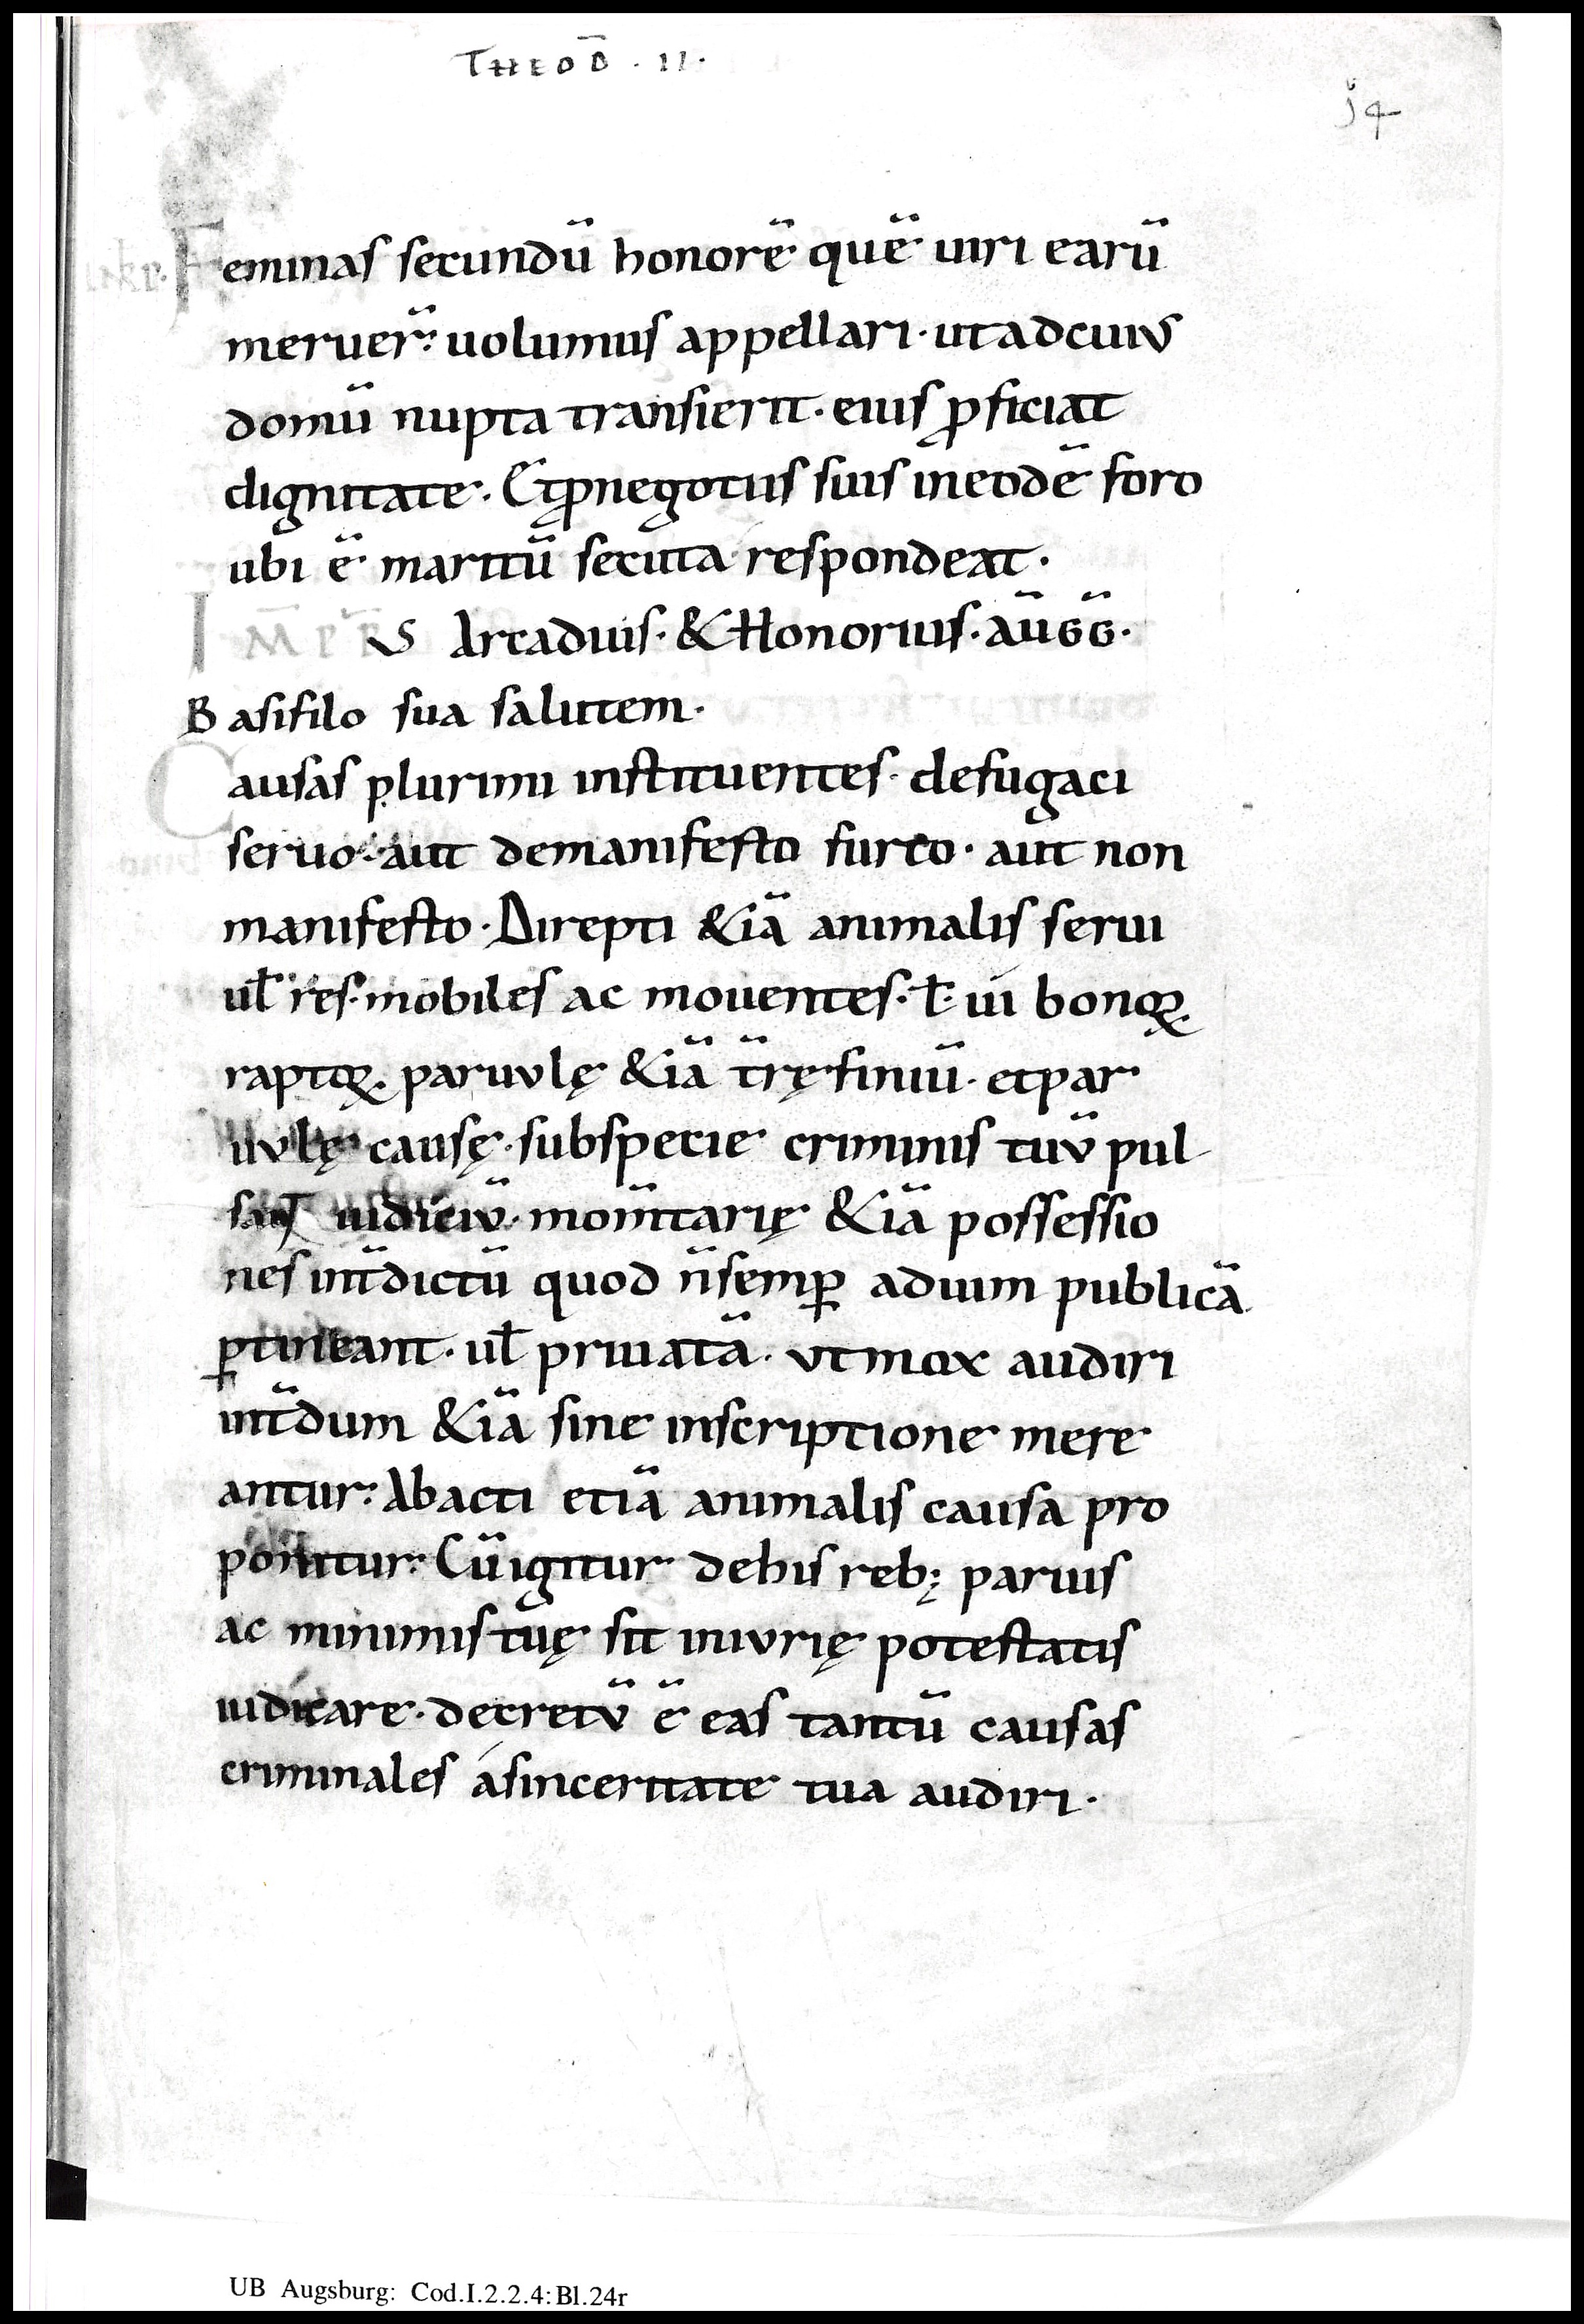 THEOD̄ · II ·
j4
Feminas secundū honorē quē uiri earū
meruer̄: uolumus appellari · ut ad cuius
domū nupta transierit · eius ꝓficiat
dignitate · Et ꝓ negotiis suis in eodē foro
ubi ē maritū secuta respondeat ·
IMPR̄S Arcadius · & Honorius · aūgḡ ·
Basifilo sua salutem ·
Causas plurimi instituentes · de fugaci
seruo · aut de manifesto furto · aut non
manifesto · Direpti &iā animalis serui
ul̄ res · mobiles ac mouentes · ł · ui bonoꝝ
raptoꝝ · paruulę &iā tr̄ę finiū · et par
uulę causę · sub specie criminis tuū pul
iudiciū · mom̄tarię &iā possessio
nes int̄dictū quod n̄ semꝑ ad uim publicā
ꝑtineant · ul̄ priuatā · ut mox audiri
int̄dum &iā sine inscriptione mere
antur: Abacti etiā animalis causa pro
ponitur: Cū igitur de his reb; paruis
ac minimis tuę sit iniurię potestatis
iudicare · decretū ē eas tantū causas
criminales á sinceritate tua audiri ·
UB Augsburg: Cod.I.2.2.4:Bl.24r